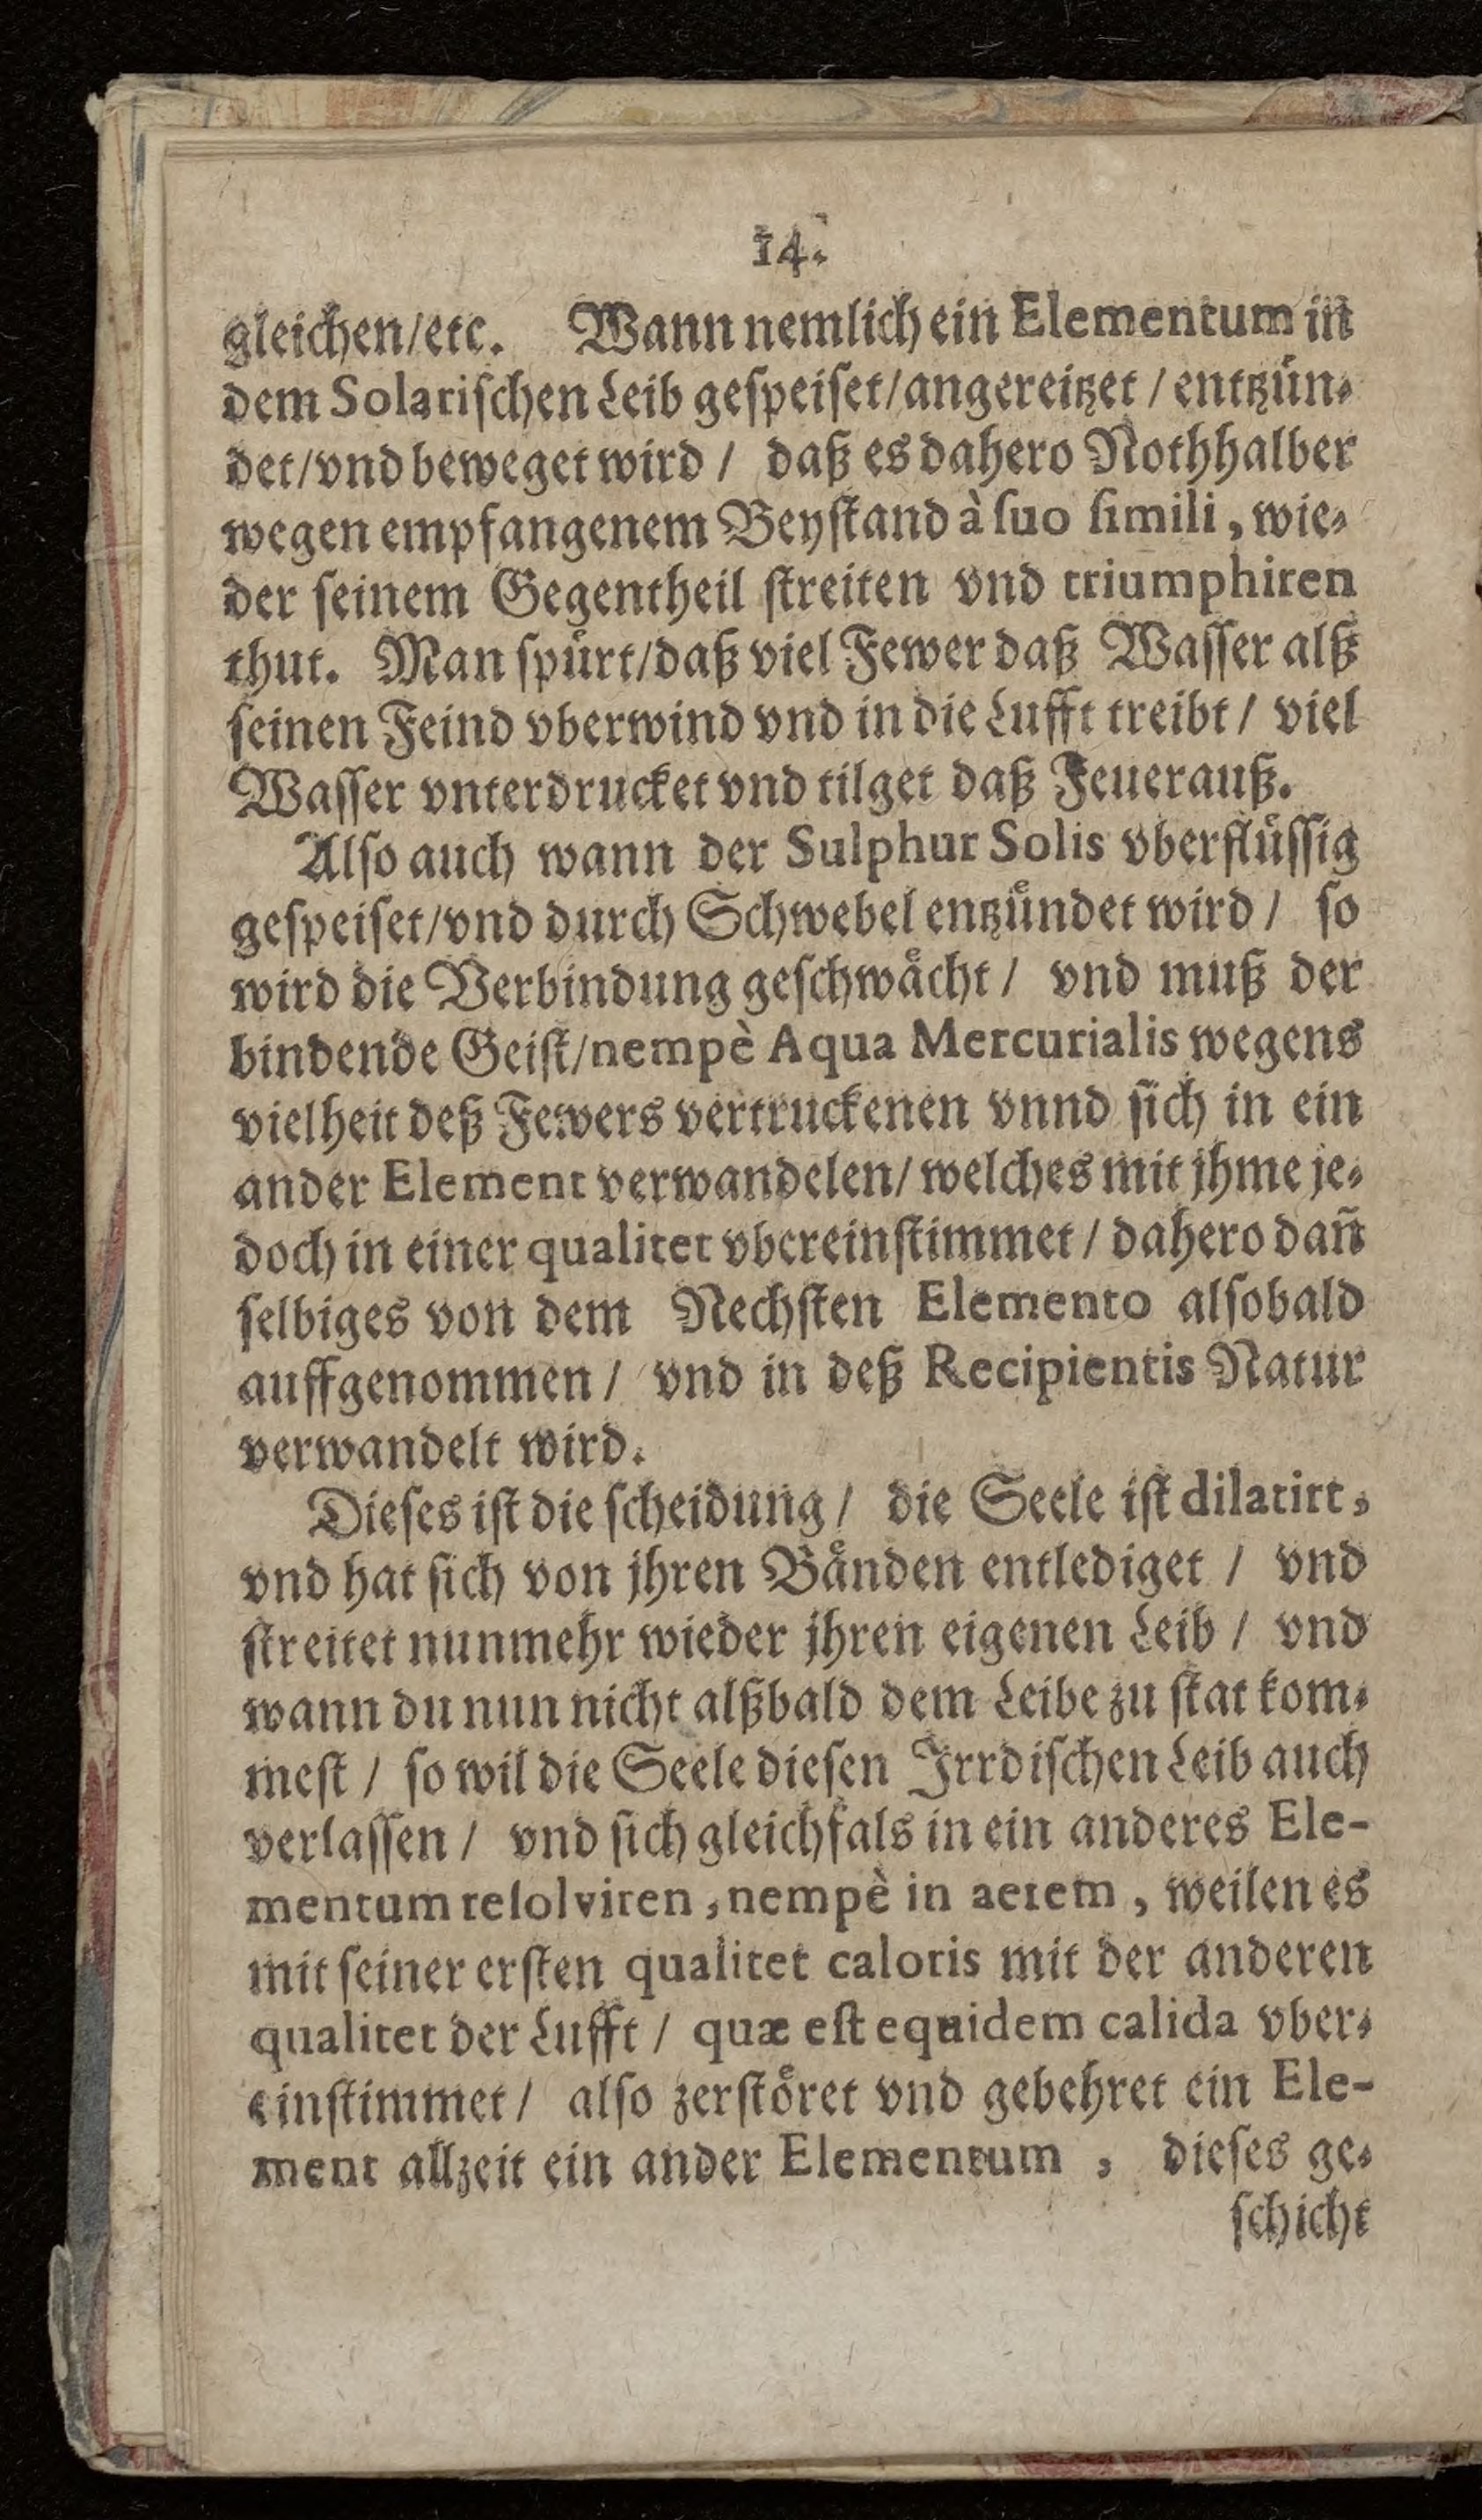 14.
gleichen/etc. Wann nemlich ein Elementum in
dem Solarischen Leib gespeiset/angereitzet / entzün-
det/vnd beweget wird / daß es dahero Nothhalber
wegen empfangenem Beystand à suo simili, wie-
der seinem Gegentheil streiten vnd triumphiren
thut. Man spürt/daß viel Fewer daß Wasser alß
seinen Feind vberwind vnd in die Lufft treibt / viel
Wasser vnterdrucket vnd tilget daß Feuer auß.
Also auch wann der Sulphur Solis vberflüssig
gespeiset/vnd durch Schwebel entzündet wird / so
wird die Verbindung geschwächt / vnd muß der
bindende Geist/nempè Aqua Mercurialis wegens
vielheit deß Fewers vertruckenen vnnd sich in ein
ander Element verwandelen/ welches mit jhme je-
doch in einer qualitet vbereinstimmet / dahero dañ
selbiges von dem Nechsten Elemento alsobald
auffgenommen / vnd in deß Recipientis Natur
verwandelt wird.
Dieses ist die scheidung / die Seele ist dilatirt,
vnd hat sich von jhren Bänden entlediget / vnd
streitet nunmehr wieder jhren eigenen Leib / vnd
wann du nun nicht alßbald dem Leibe zu stat kom-
mest / so wil die Seele diesen Irrdischen Leib auch
verlassen / vnd sich gleichfals in ein anderes Ele-
mentum resolviren, nempè in aerem, weilen es
mit seiner ersten qualitet caloris mit der anderen
qualitet der Lufft / quæ est equidem calida vber-
einstimmet / also zerstöret vnd gebehret ein Ele-
ment allzeit ein ander Elementum, dieses ge-
schicht